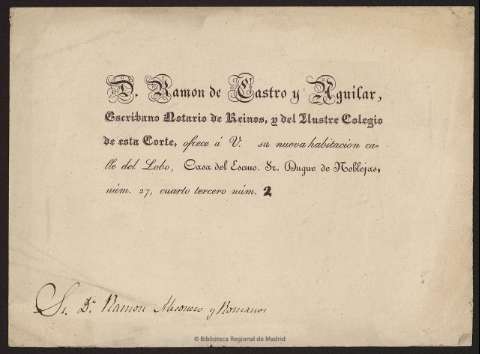 D. Ramon de Castro y Aguilar,
Escribano Notario de Reinos, y del Ilustre Colegio
de esta Corte, ofrece á V. su nueva habitacion ca-
lle del Lobo, Casa del Escmo. Sr. Duque de Noblejas,
núm. 27, cuarto tercero núm. 2
Sr. Dn. Ramon Mesonero y Romanos
© Biblioteca Regional de Madrid